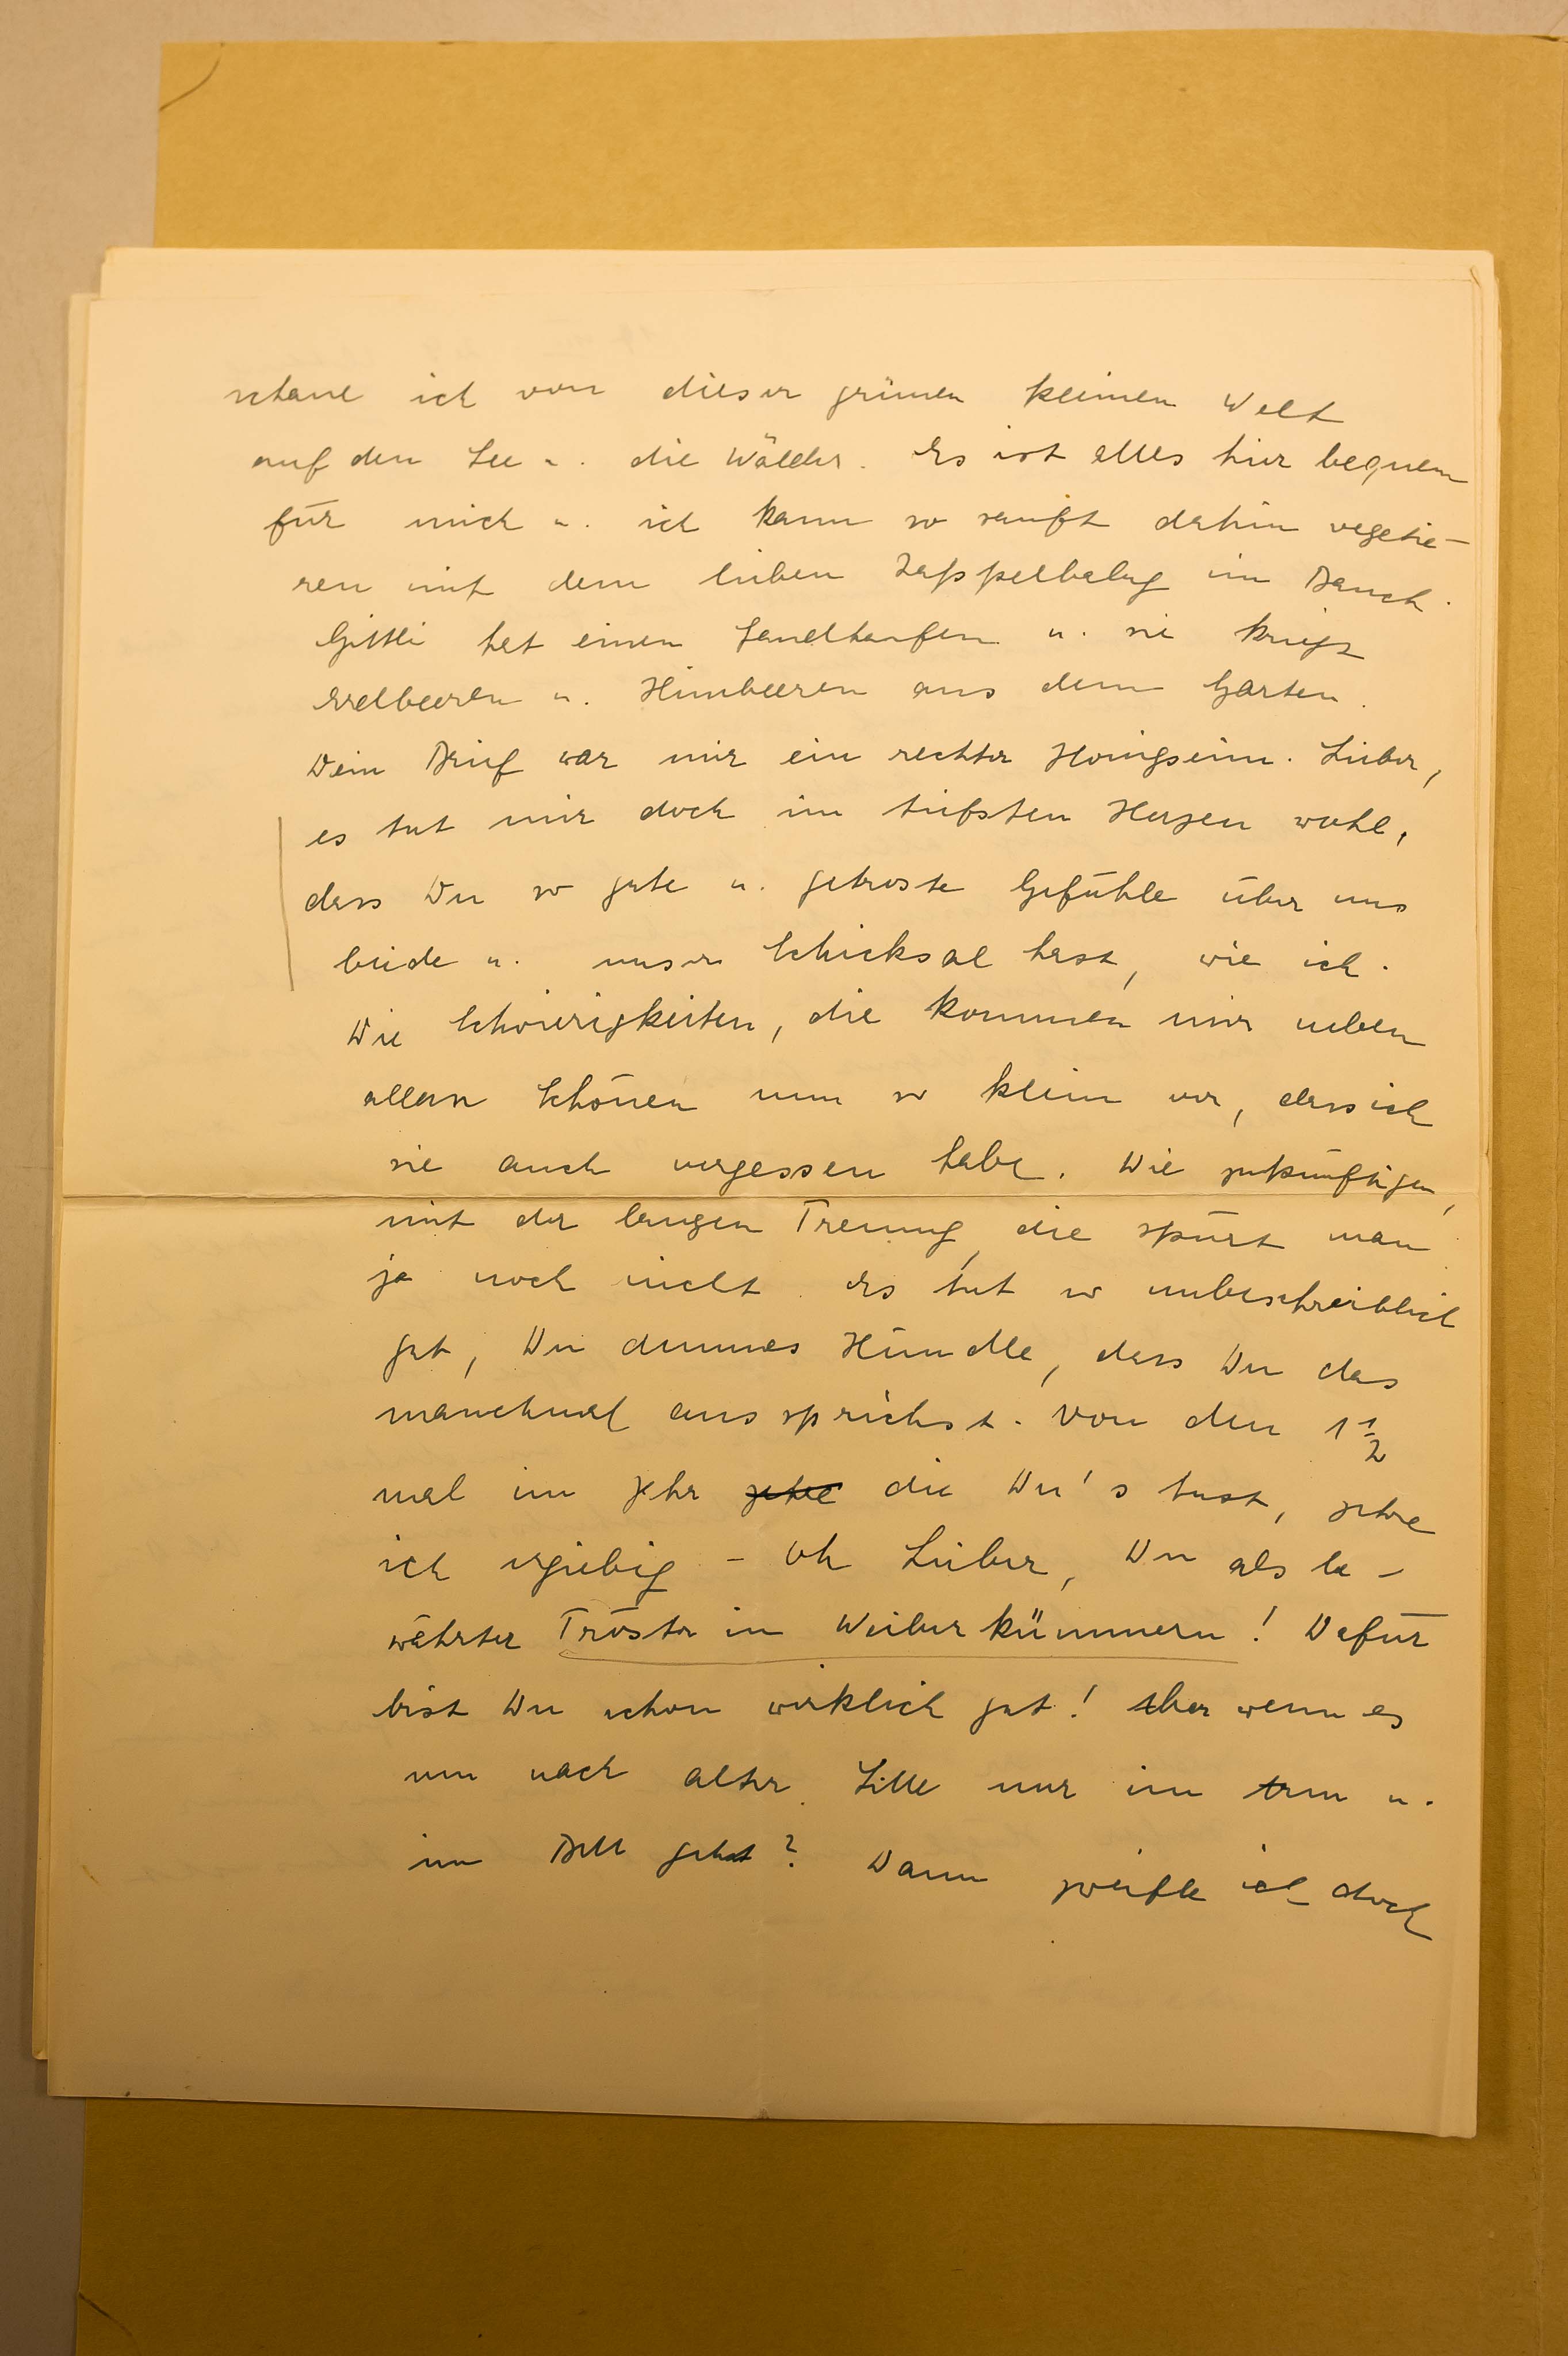 schaue ich von dieser grünen kleinen Welt
auf den See u. die Wälder. Es ist alles hier bequem
für mich u. ich kann so sanft dahin vegetie-
ren mit dem lieben Zappelbalg im Bauch.
Gittli hat einen Sandhaufen u. sie kriegt
Erdbeeren u. Himbeeren aus dem Garten.
Dein Brief war mir ein rechter Honigseim. Lieber,
es tut mir doch im tiefsten Herzen wohl,
dass Du so gute u. getroste Gefühle über uns
beide u. unser Schicksal hast, wie ich.
Die Schwierigkeiten, die kommen mir neben
allem Schönen nun so klein vor, dass ich
sie auch vergessen habe. Die zukünftigen,
mit der langen Trennung, die spürt man
ja noch nicht. Es tut so unbeschreiblich
gut, Du dummes Hündle, dass Du das
manchmal aussprichst. Von den 1 1/2
mal im Jahr zehre die Du's tust, zehre
ich ergiebig - Oh Lieber, Du als be-
währter Tröster in Weiberkümmern! Dafür
bist Du schon wirklich gut! Aber wenn es
nun nach alter Sitte nur im Arm u.
im Bett geht? Dann zweifle ich doch